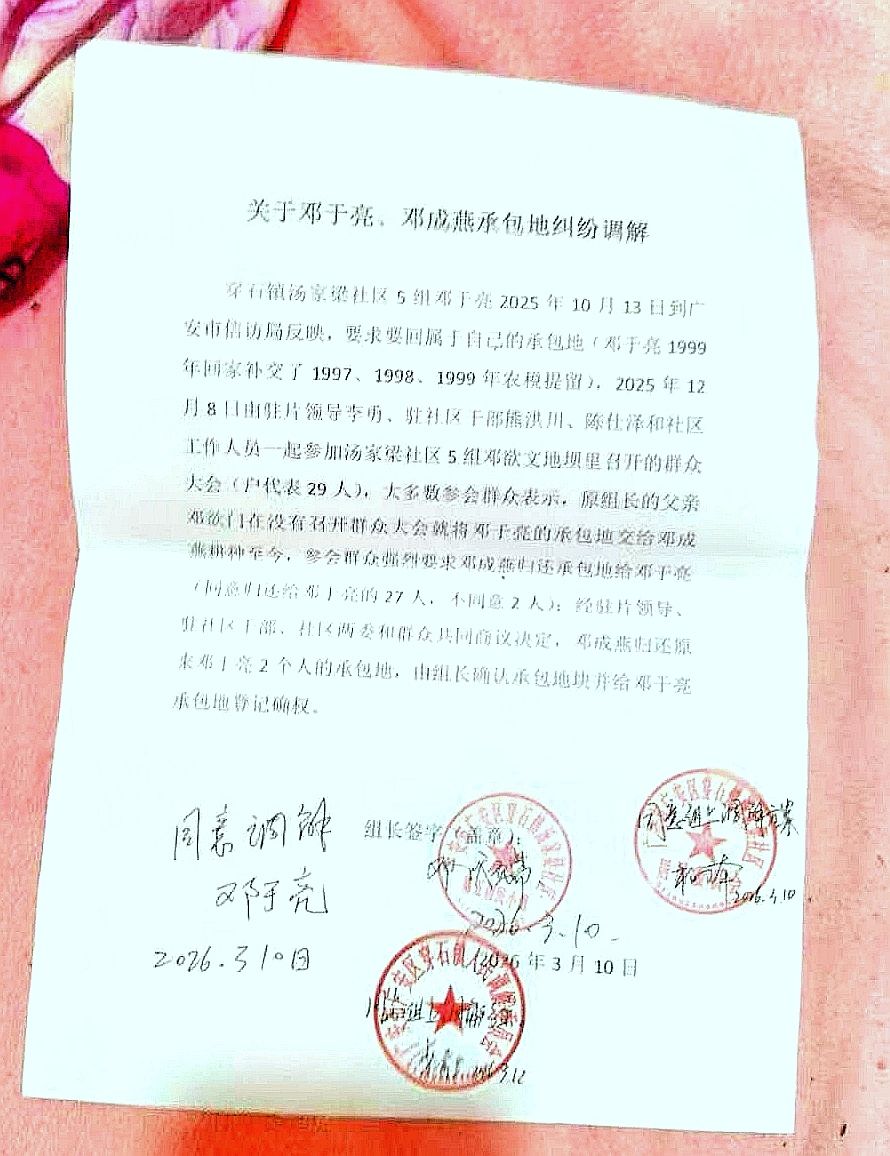 关于邓于亮、邓成燕承包地纠纷调解
穿石镇汤家梁社区 5 组邓于亮 2025 年 10 月 13 日到广
安市信访局反映，要求要回属于自己的承包地（邓于亮 1999
年回家补交了 1997、1998、1999 年农税提留），2025 年 12
月 8 日由驻片领导李勇、驻社区干部熊洪川、陈仕泽和社区
工作人员一起参加汤家梁社区 5 组邓欲文地坝里召开的群众
大会（户代表 29 人），大多数参会群众表示，原组长的父亲
邓欲门在没有召开群众大会就将邓于亮的承包地交给邓成
燕耕种至今，参会群众强烈要求邓成燕归还承包地给邓于亮
（同意归还给邓于亮的 27 人，不同意 2 人）；经驻片领导、
驻社区干部、社区两委和群众共同商议决定，邓成燕归还原
来邓于亮 2 个人的承包地，由组长确认承包地块并给邓于亮
承包地登记确权。
同意调解
邓于亮
2026.3月10日
组长签字（盖章）：
2026.3.10
2026 年 3 月 10 日
同意组上调解方案
2026.3.10